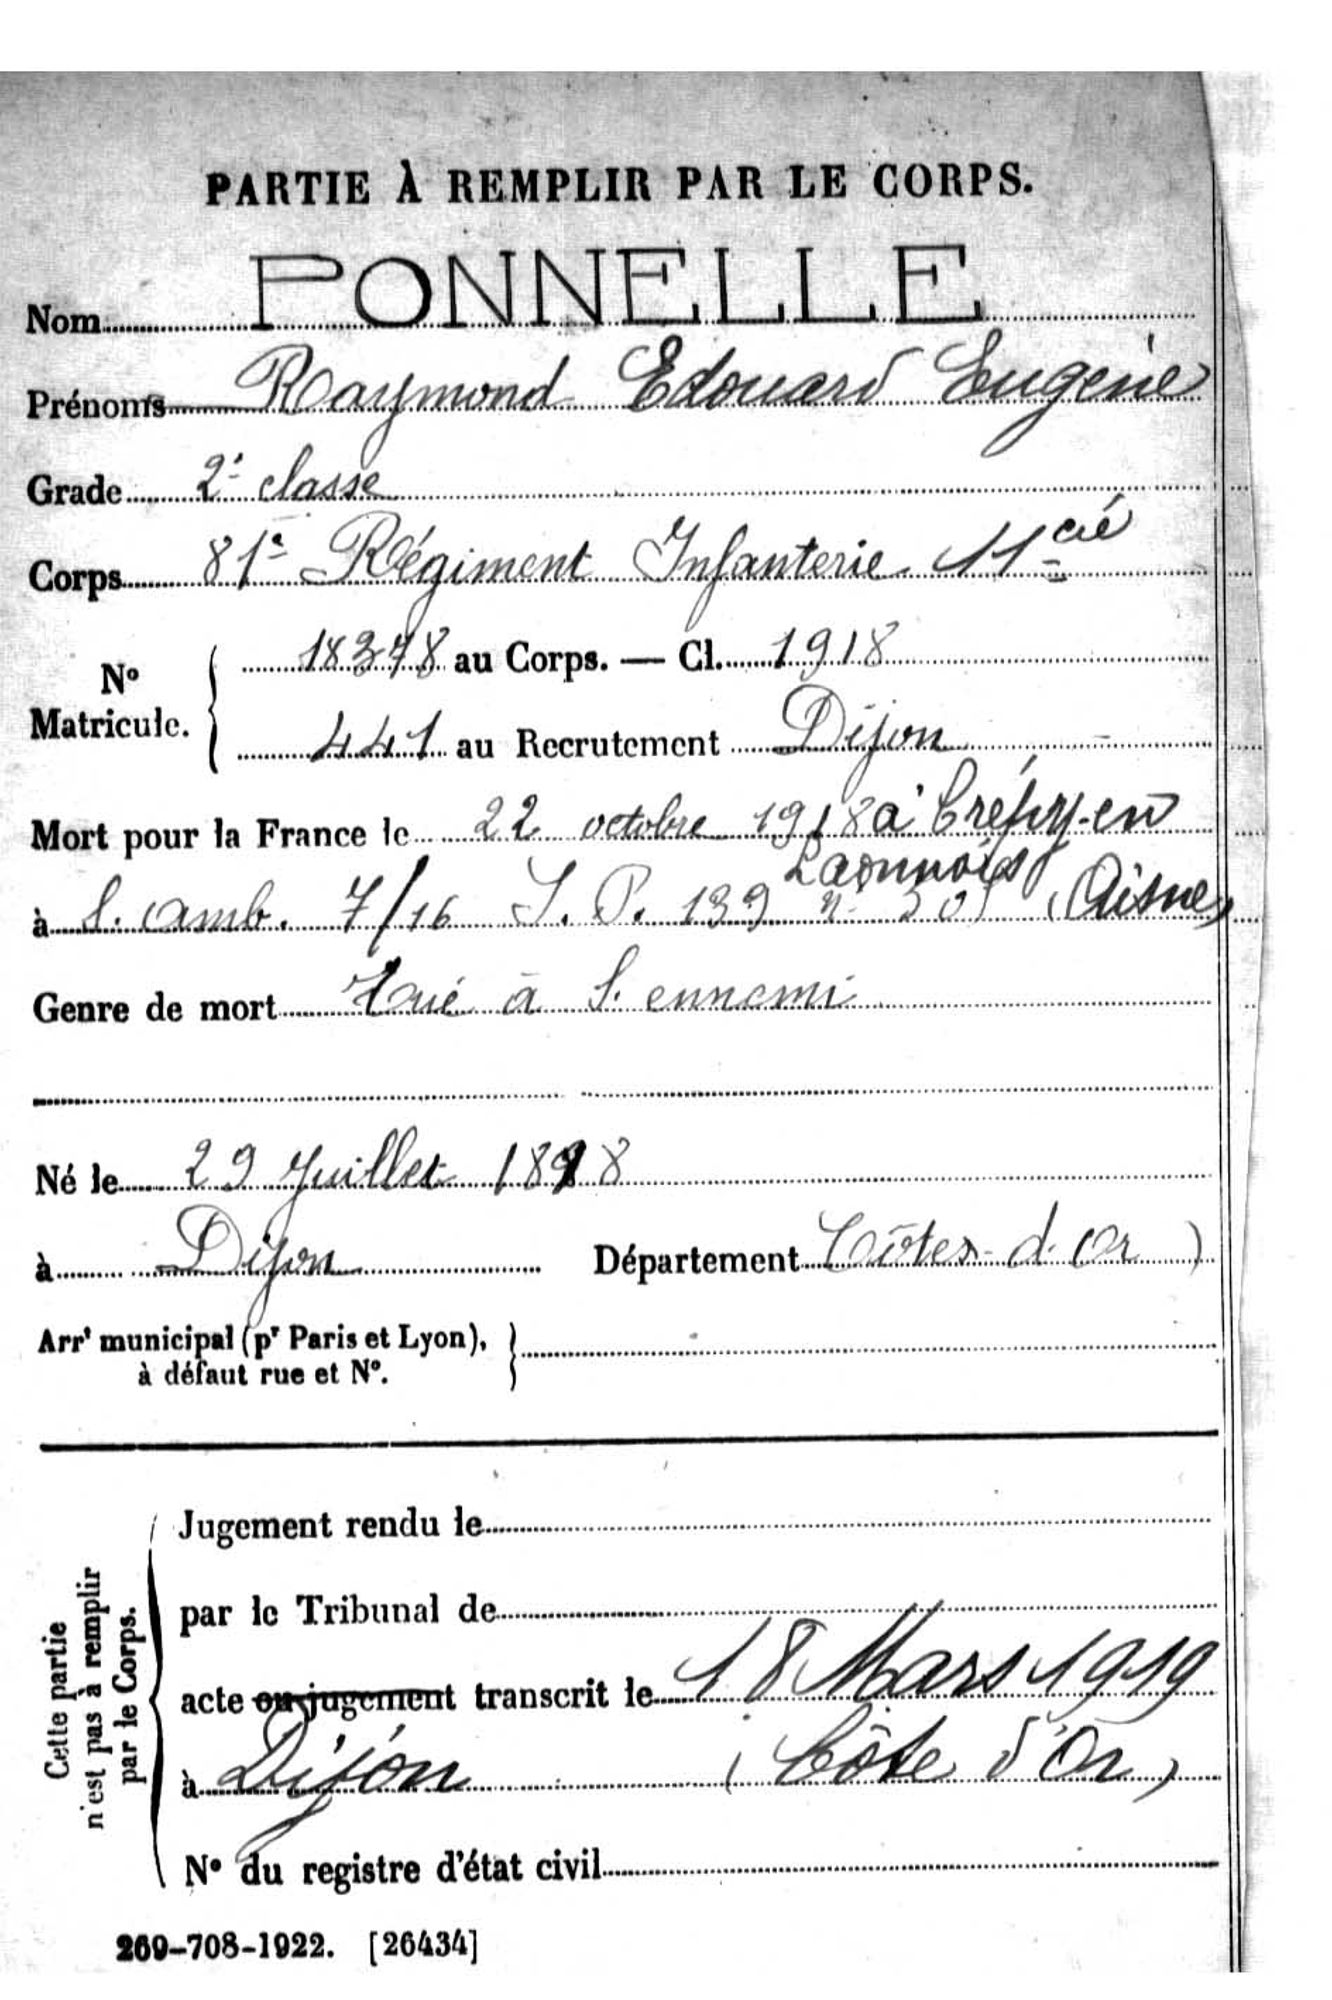 PARTIE À REMPLIR PAR LE CORPS.
Nom PONNELLE
Prénoms Raymond Edouard Eugène
Grade 2e classe
Corps 81e Régiment Infanterie 11cie
No Matricule. 18378 au Corps. — Cl. 1918
441 au Recrutement Dijon
Mort pour la France le 22 octobre 1918 à Crépy-en
Laonnois
à l. amb. 7/16 S. P. 139 (Aisne)
Genre de mort Tué à l. ennemi
Né le 29 Juillet 1898
à Dijon Département Côtes-d.Or )
Arrt municipal (pr Paris et Lyon),
à défaut rue et No.
Cette partie
n'est pas à remplir
par le Corps.
Jugement rendu le
par le Tribunal de
acte ou jugement transcrit le 18 Mars 1919
à Dijon (Côte d'Or)
No du registre d'état civil
269-708-1922. [26434]